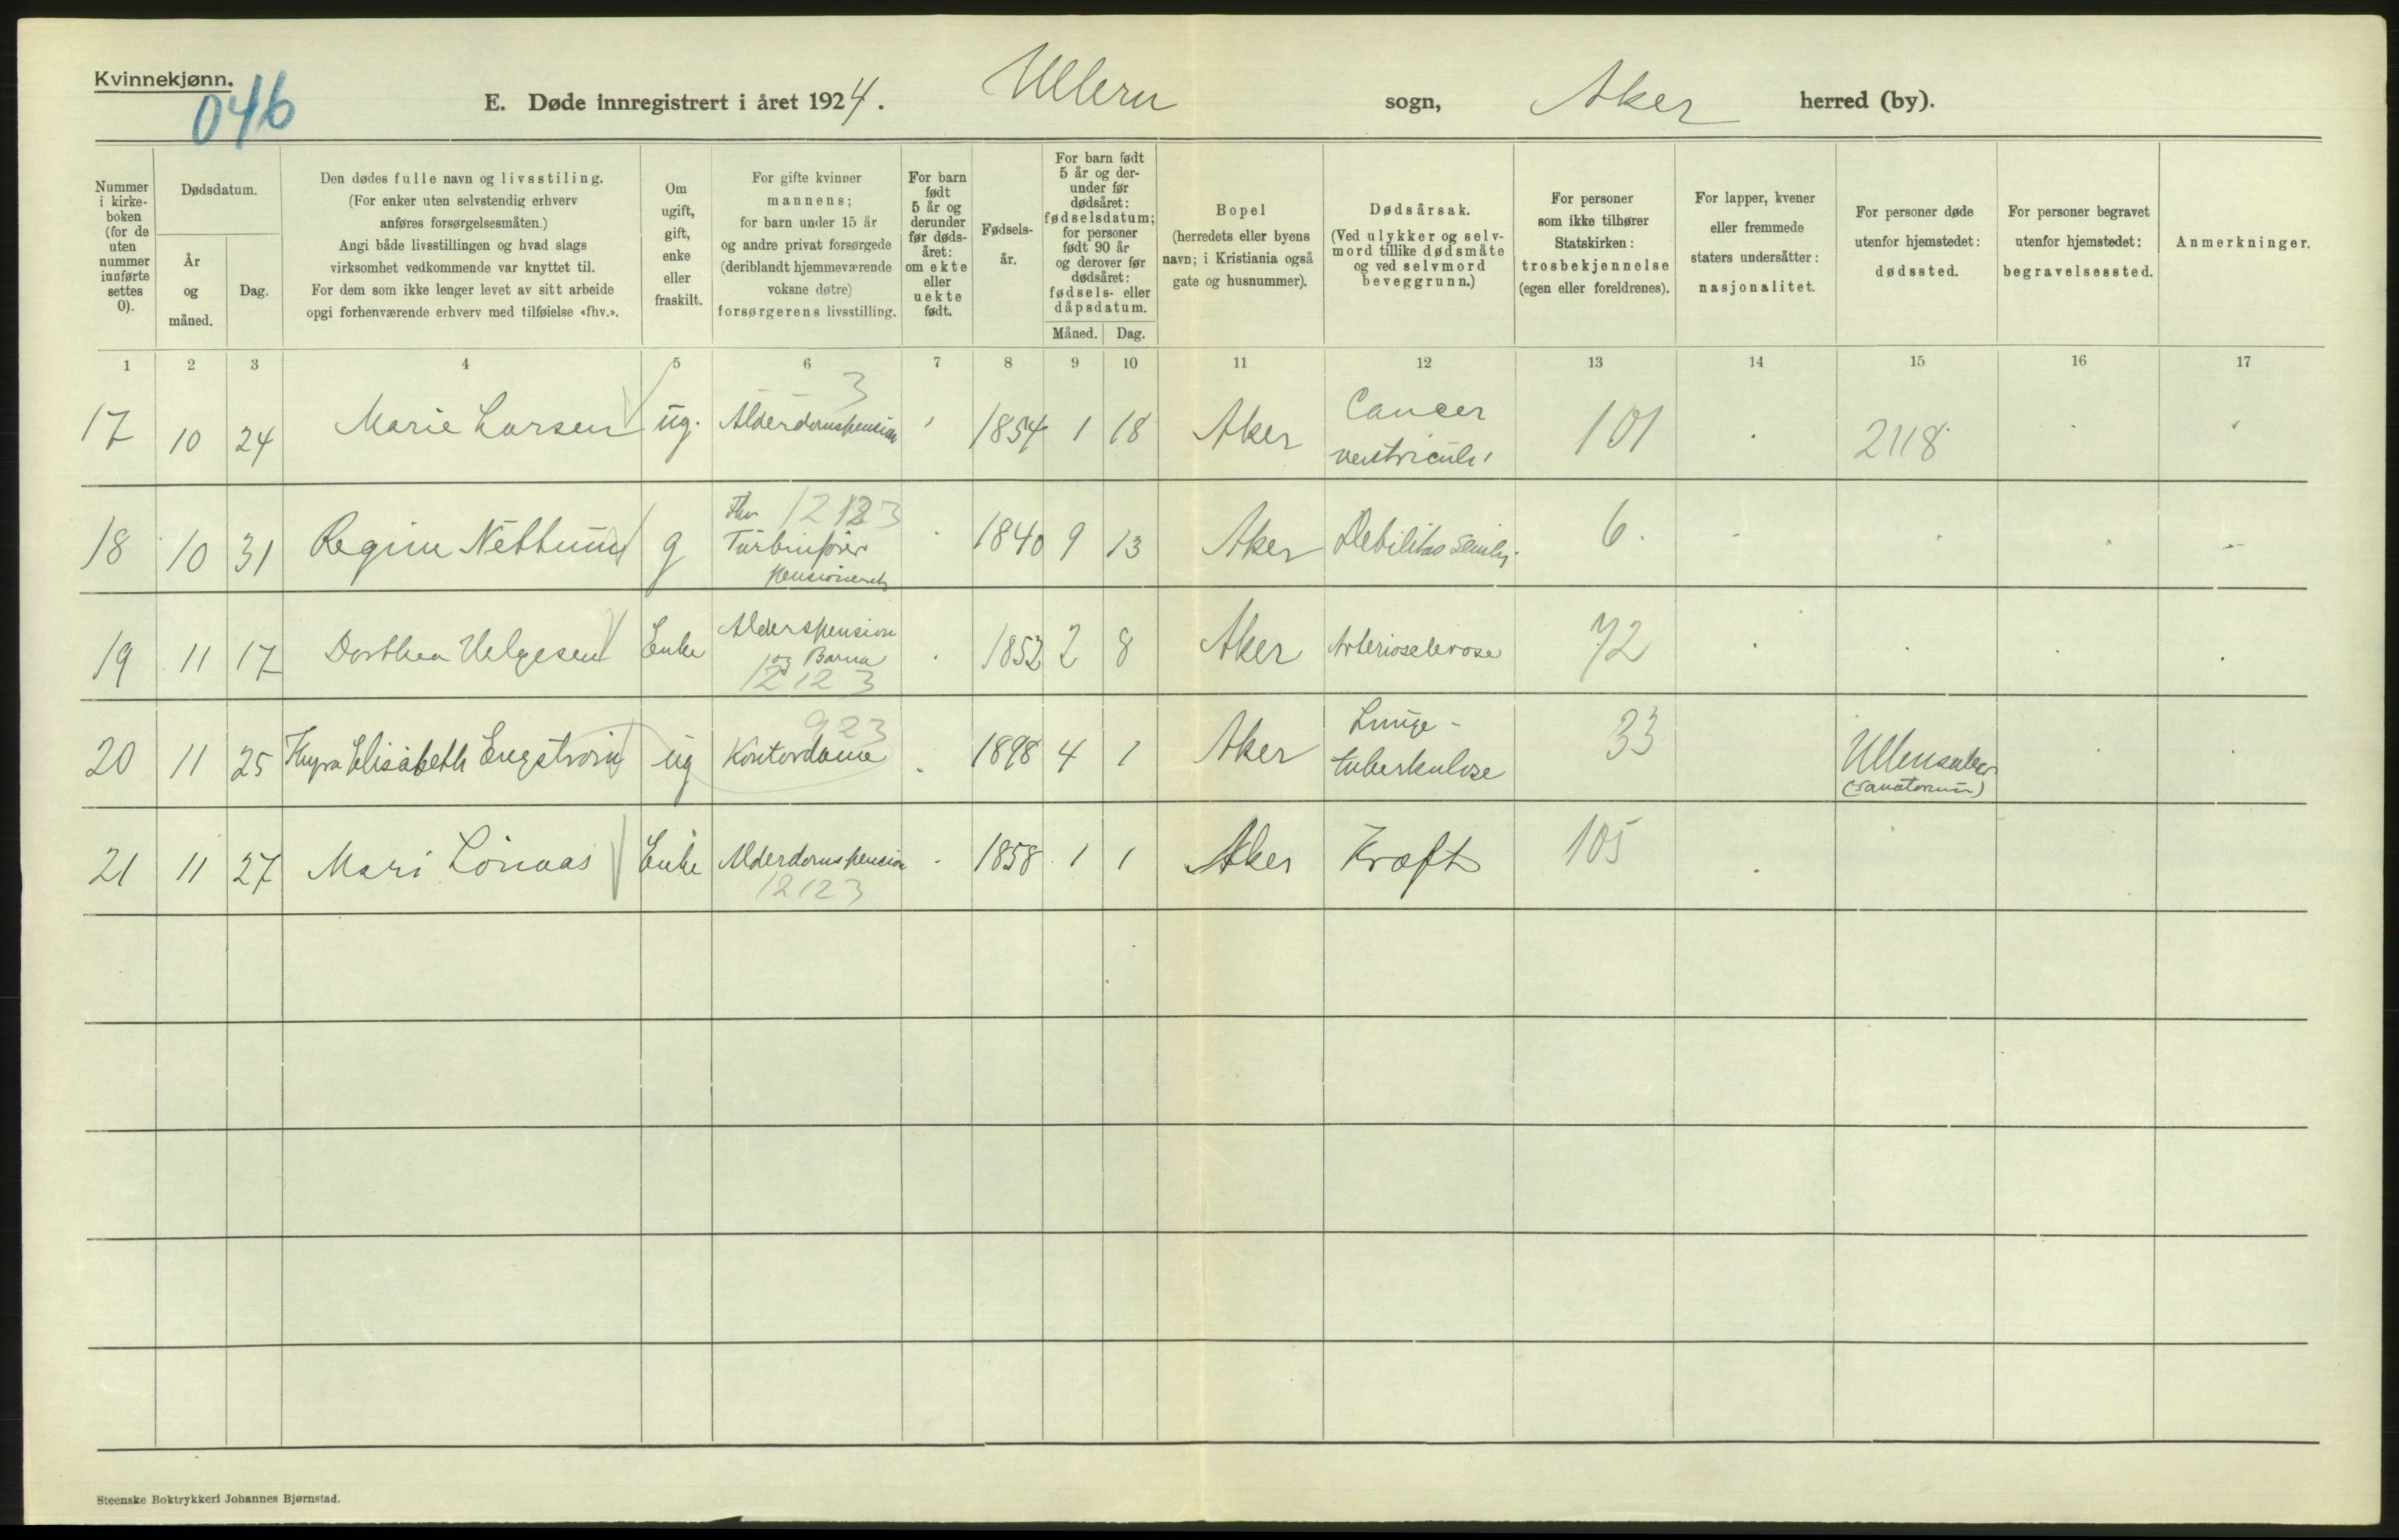 Kvinnekjønn.
046
E. Døde innregistrert i året 1924. Ullern sogn, Aker herred (by).
Nummer i kirke-boken (for de uten nummer innførte settes 0).
Dødsdatum.
År og måned.
Dag.
Den dødes fulle navn og livsstiling.
(For enker uten selvstendig erhverv
anføres forsørgelsesmåten.)
Angi både livsstillingen og hvad slags
virksomhet vedkommende var knyttet til.
For dem som ikke lenger levet av sitt arbeide
opgi forhenværende erhverv med tilføielse «fhv.».
Om
ugift,
gift,
enke
eller
fraskilt.
For gifte kvinner
mannens;
for barn under 15 år
og andre privat forsørgede
(deriblandt hjemmeværende
voksne døtre)
forsørgerens livsstilling.
For barn
født
5 år og
derunder
før døds-
året:
om ekte
eller
uekte
født.
Fødsels-
år.
For barn født
5 år og der-
under før
dødsåret:
fødselsdatum;
for personer
født 90 år
og derover før
dødsåret:
fødsels- eller
dåpsdatum.
Måned. Dag.
Bopel
(herredets eller byens
navn; i Kristiania også
gate og husnummer).
Dødsårsak.
(Ved ulykker og selv-
mord tillike dødsmåte
og ved selvmord
beveggrunn.)
For personer
som ikke tilhører
Statskirken:
trosbekjennelse
(egen eller foreldrenes).
For lapper, kvener
eller fremmede
staters undersåtter:
nasjonalitet.
For personer døde
utenfor hjemstedet:
dødssted.
For personer begravet
utenfor hjemstedet:
begravelsessted.
Anmerkninger.
1 2 3 4 5 6 7 8 9 10 11 12 13 14 15 16 17
3
17 10 24 Marie Larsen ug. Alderdomspension 1854 1 18 Aker Cancer ventriculi 101 2118
18 10 31 Regine g Fhv 12 12 3 Pensionert 1840 9 13 Aker Debilitas senilis 6.
19 11 17 Dorthea Helgesen Enke Alderspension og Barna 12 12 3 1852 2 8 Aker Arteriosclerose 72
20 11 25 Thyra Elisabeth Engström ug 923 Kontordame 1898 4 1 Aker Lunge- tuberkulose 33 Ullensaker (Sanatorium)
21 11 27 Mari Lönaas Enke Alderdomspension 12 12 3 1858 1 1 Aker Kræft 105
Steenske Boktrykkeri Johannes Bjørnstad.